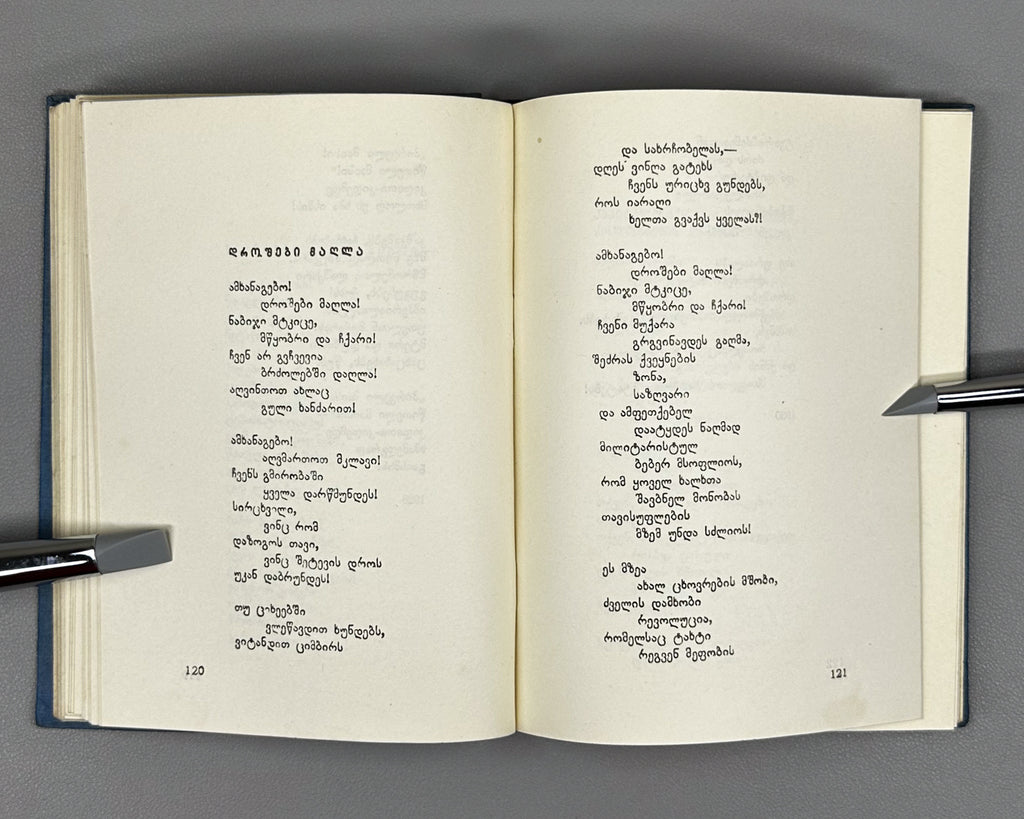 დროშები მაღლა
ამხანაგებო!
დროშები მაღლა!
ნაბიჯი მტკიცე,
მწყობრი და ჩქარი!
ჩვენ არ გვჩვევია
ბრძოლებში დაღლა!
აღვინთოთ ახლაც
გული ხანძარით!
ამხანაგებო!
აღვმართოთ მკლავი!
ჩვენს გმირობაში
ყველა დარწმუნდეს!
სირცხვილი,
ვინც რომ
დაზოგოს თავი,
ვინც შეტევის დროს
უკან დაბრუნდეს!
თუ ციხეებში
ვლეწავდით ხუნდებს,
ვიტანდით ციმბირს
120
და სახრჩობელას,—
დღეს ვინღა გატეხს
ჩვენს ურიცხვ გუნდებს,
როს იარაღი
ხელთა გვაქვს ყველას?!
ამხანაგებო!
დროშები მაღლა!
ნაბიჯი მტკიცე,
მწყობრი და ჩქარი!
ჩვენი მუქარა
გრგვინავდეს გაღმა,
შეძრას ქვეყნების
ზონა,
საზღვარი
და ამფეთქებელ
დაატყდეს ნაღმად
მილიტარისტულ
ბებერ მსოფლიოს,
რომ ყოველ ხალხთა
შავბნელ მონობას
თავისუფლების
მზემ უნდა სძლიოს!
ეს მზეა
ახალ ცხოვრების მშობი,
ძველის დამხობი
რევოლუცია,
რომელსაც ტახტი
რეგვენ მეფობის
121